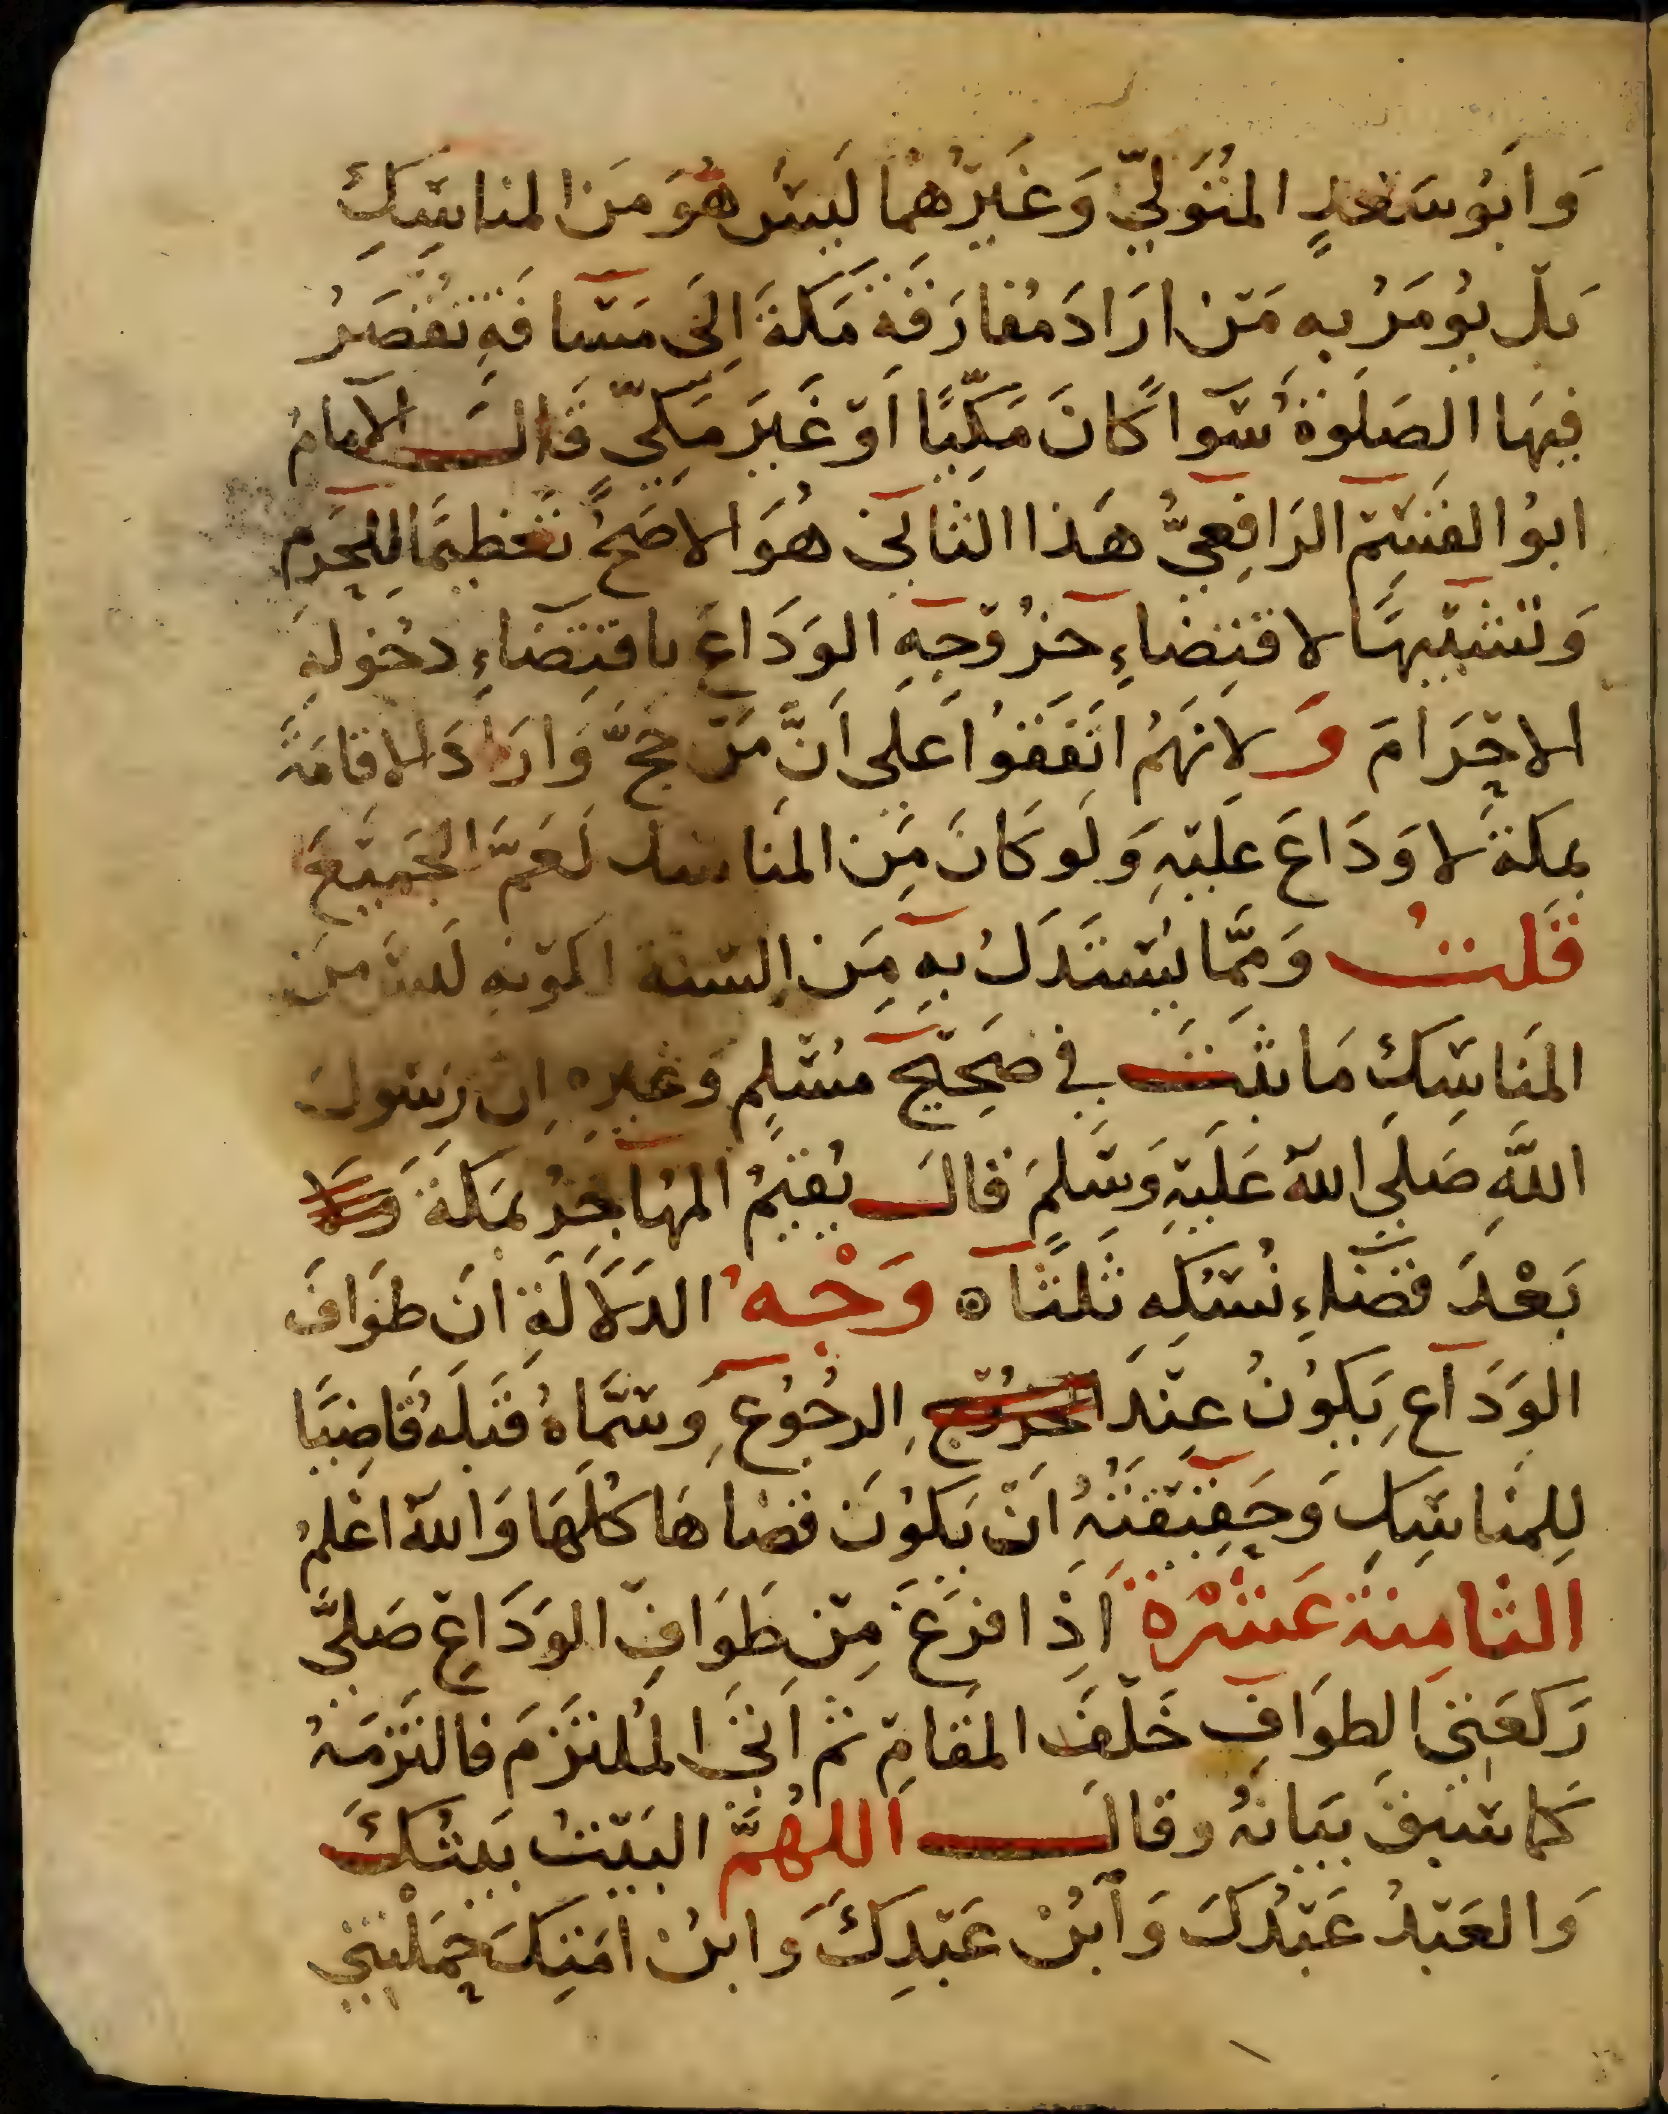 وَابُو سَعْدٍ المتَوَلِّيّ وَغَيرُهُما لَيسَ هُوَ مِنَ المناسِكِ
بَل يُومَرُ بِهِ مَن ارَادَ مُفارَقَةَ مَكةَ اِلَى مَسَافَةِ تُقصَرُ
فِيهَا الصَلَوةُ سَوَاً كانَ مَكِيًّا اَو غَيَر مَكِيّ قَالَ الامامُ
ابوُ القَسِم الرَافِعِيُّ هَذا الثاَنِى هُوَ الاصَحُّ تَعْظِيمًا لِلحَرَمِ
وَتَشبيهًا لاقتِضَاءِ خرُوجِهِ الوَدَاعَ باقتِضَاءِ دخولِهِ
الاحْرَامَ وَلانَهُم اتَفَقُوا عَلى اَنَّ مَن حَجَّ وَارَادَ الاقامَةَ
بمَكةَ لا وَدَاعَ عَليهِ وَلَو كَانَ مِنَ المنَاسك لَعَمَّ الجَميعَ
قَلتُ وَمِمَّا يُستَدَلُ بِهِ مِنَ السنة لكونه لَيسَ مِنَ
المنَاسِكِ مَا ثبَتَ فِي صَحِيحِ مُسْلِمٍ وَغيرِه ان رَسولَ
اللَّهِ صَلى اللهُ عَلَيهِ وَسَلمَ قالَ يُقيمُ المهَاجِرُ بمَكةَ وَلا
بَعْدَ قضَاءِ نُسُكِهِ ثَلثًا ۞ وَجْهُ الدَلاَلَةِ انَ طوَافَ
الوَدَاعِ يَكوُنُ عِندَ الخرُوج الرجُوُعِ وَسَمَّاهُ قَبلَهُ قَاضِيًا
لِلمنَاسِكِ وَحَقِيقَتُهُ اَن يَكوُنَ قضَاهَا كُلَهَا وَاللهُ اعْلمُ
الثامِنة عَشْرَة اِذَا فرَغَ مِن طَوَافِ الوَدَاعِ صَلىَّ
رَكعَتىِ الطوَافِ خَلفَ المَقامِ ثم اَتىَ المُلتزَمَ فالتَزَمَهُ
كَما سَبَقَ بَيَانُهُ وقالَ اَللهُمَّ البَيتُ بَيتُكَ
وَالعَبْدُ عَبْدُكَ وَابْنُ عَبْدِكَ وَابنُ اَمَتِكَ حَمَلْتَنِي